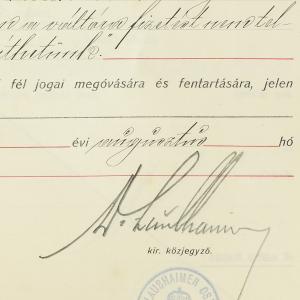 a m. váltóra fizetést nem tel-
jesíthetünk".
fél jogai megóvására és fentartására, jelen
évi augusztus hó
Dr Laubhaimer
kir. közjegyző.
LAUBHAIMER OS